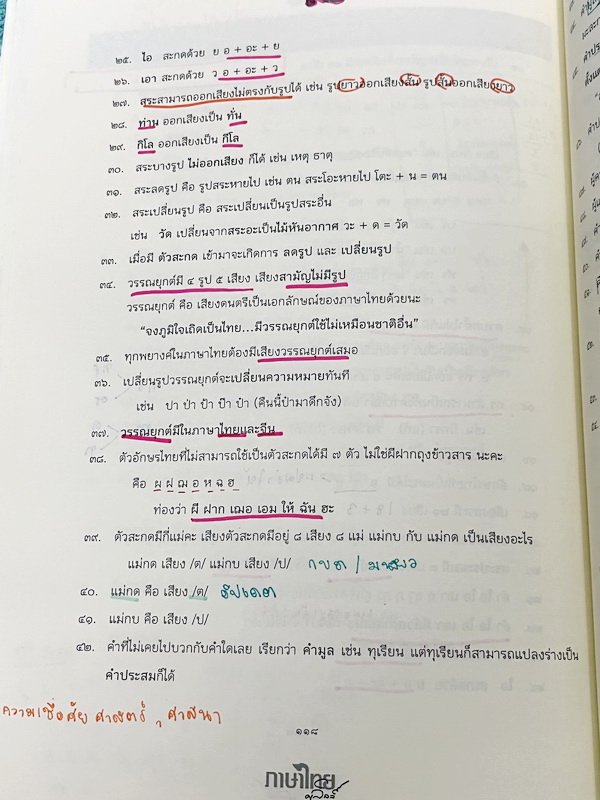 ๒๕. ไอ สะกดด้วย ย อ + อะ + ย
๒๖. เอา สะกดด้วย ว อ + อะ + ว
๒๗. สระสามารถออกเสียงไม่ตรงกับรูปได้ เช่น รูปยาวออกเสียงสั้น รูปสั้นออกเสียงยาว
๒๘. ท่าน ออกเสียงเป็น ทั่น
๒๙. กิโล ออกเสียงเป็น กีโล
๓๐. สระบางรูป ไม่ออกเสียง ก็ได้ เช่น เหตุ ธาตุ
๓๑. สระลดรูป คือ รูปสระหายไป เช่น ตน สระโอะหายไป โตะ + น = ตน
๓๒. สระเปลี่ยนรูป คือ สระเปลี่ยนเป็นรูปสระอื่น
เช่น วัด เปลี่ยนจากสระอะเป็นไม้หันอากาศ วะ + ด = วัด
๓๓. เมื่อมี ตัวสะกด เข้ามาจะเกิดการ ลดรูป และ เปลี่ยนรูป
๓๔. วรรณยุกต์มี ๔ รูป ๕ เสียง เสียงสามัญไม่มีรูป
วรรณยุกต์ คือ เสียงดนตรีเป็นเอกลักษณ์ของภาษาไทยด้วยนะ
“จงภูมิใจเถิดเป็นไทย...มีวรรณยุกต์ใช้ไม่เหมือนชาติอื่น”
๓๕. ทุกพยางค์ในภาษาไทยต้องมีเสียงวรรณยุกต์เสมอ
๓๖. เปลี่ยนรูปวรรณยุกต์จะเปลี่ยนความหมายทันที
เช่น ปา ป่า ป้า ป๊า ป๋า (คืนนี้ป๋ามาดึกจัง)
๓๗. วรรณยุกต์มีในภาษาไทยและจีน
๓๘. ตัวอักษรไทยที่ไม่สามารถใช้เป็นตัวสะกดได้มี ๗ ตัว ไม่ใช่ผีฝากถุงข้าวสาร นะคะ
คือ ผ ฝ ฌ อ ห ฉ ฮ
ท่องว่า ผี ฝาก เฌอ เอม ให้ ฉัน ฮะ
๓๙. ตัวสะกดมีกี่แม่คะ เสียงตัวสะกดมีอยู่ ๘ เสียง ๘ แม่ แม่กบ กับ แม่กด เป็นเสียงอะไร
แม่กด เสียง /ต/ แม่กบ เสียง /ป/ กบด / มาสยว
๔๐. แม่กด คือ เสียง /ต/
๔๑. แม่กบ คือ เสียง /ป/
๔๒. คำที่ไม่เคยไปบวกกับคำใดเลย เรียกว่า คำมูล เช่น ทุเรียน แต่ทุเรียนก็สามารถแปลงร่างเป็น
คำประสมก็ได้
ความเชื่อ ศาสตร์ , ศาสนา
๑๑๘
ภาษาไทย